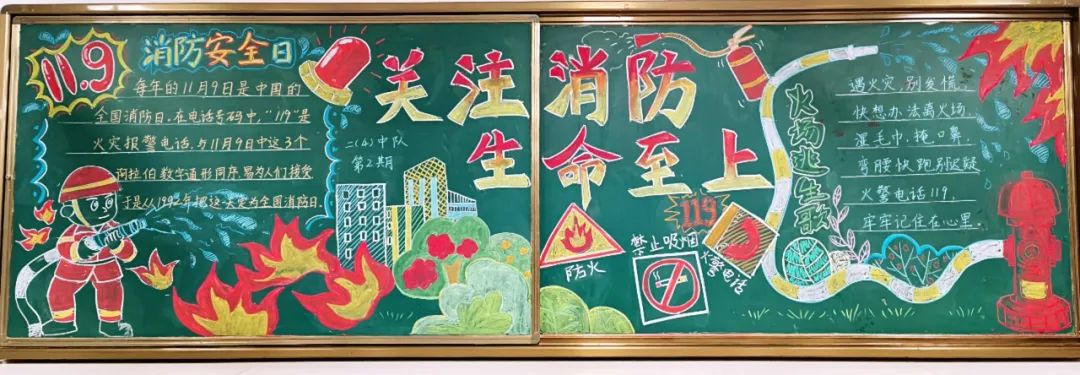 119
消防安全日
每年的11月9日是中国的
全国消防日.在电话号码中,"119"是
火灾报警电话,与11月9日中这3个
阿拉伯数字通形同序,易为人们接受
于是从1992年把这一天定为全国消防日.
关注消防
生命至上
二(6)中队
第2期
119
防火
禁止吸烟
火警电话
火场逃生歌
遇火灾,别发慌,
快想办法离火场.
湿毛巾,掩口鼻.
弯腰快跑别迟疑
火警电话119,
牢牢记住在心里.